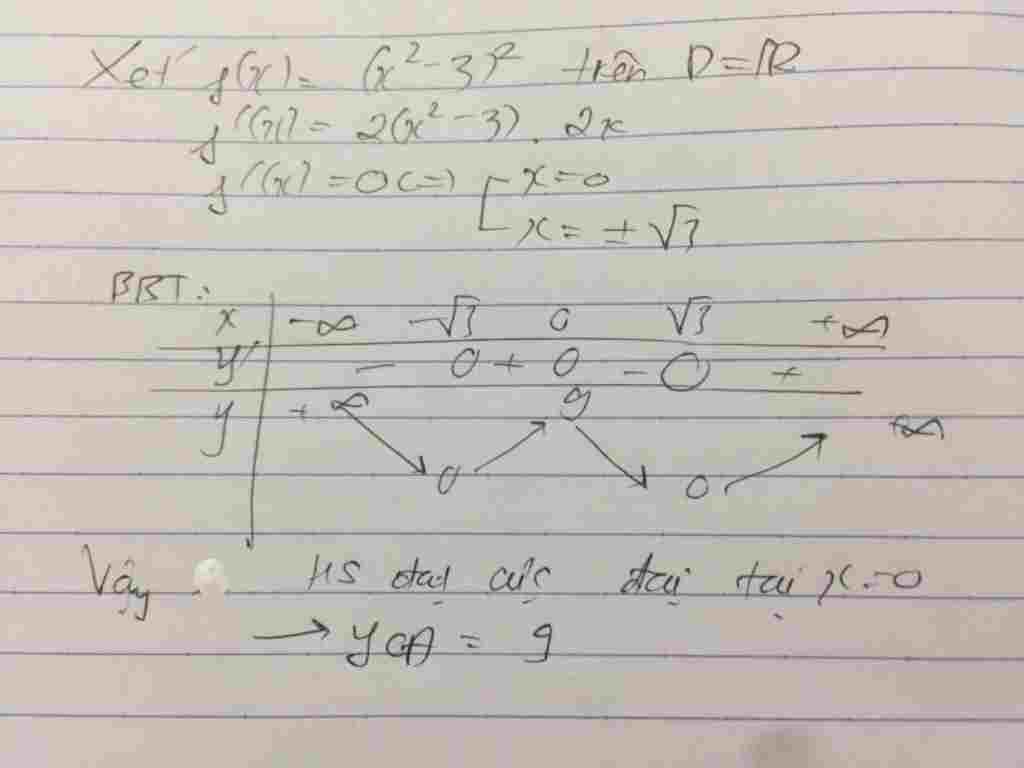 Xét f(x) = (x² - 3)² trên D = ℝ
f'(x) = 2(x² - 3). 2x
f'(x) = 0 <=> [ x = 0
x = ± √3
BBT:
x -∞ -√3 0 √3 +∞
y' - 0 + 0 - 0 +
y +∞ 0 9 0 +∞
Vậy HS đạt cực đại tại x = 0
→ yCĐ = 9